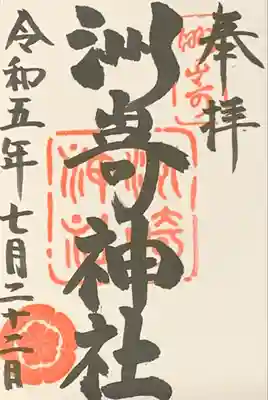 奉拝
洲嵜神社
令和五年七月二十二日
洲崎
神社